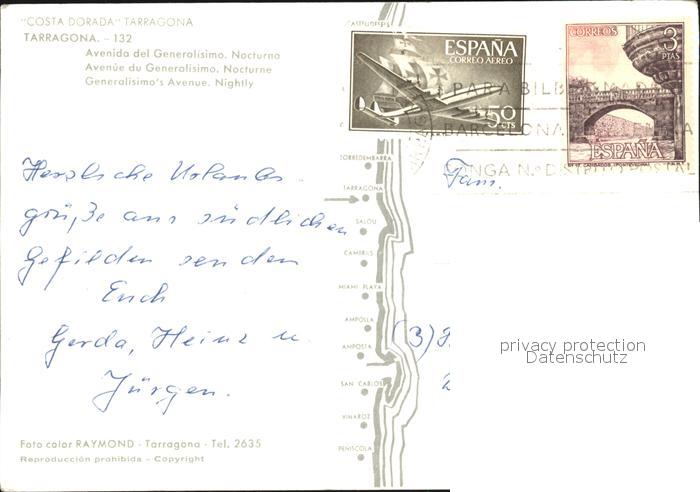 "COSTA DORADA" TARRAGONA
TARRAGONA. - 132
Avenida del Generalísimo. Nocturno
Avenúe du Generalísimo. Nocturne
Generalísimo's Avenue. Nightly
ESPAÑA
CORREO AEREO
50 CTS
CORREOS 3 PTAS
ESPAÑA
PARA BILBAO MADRID
BARCELONA
PONGA N.º DISTRITO POSTAL
TORREDEMBARRA
TARRAGONA
SALOU
CAMBRILS
MIAMI PLAYA
AMPOLLA
AMPOSTA
SAN CARLOS
VINAROZ
PEÑISCOLA
Herzliche Urlaubs-
grüße aus südlichen
Gefilden senden
Euch
Gerda, Heinz u.
Jürgen.
Fam.
(3)
privacy protection
Datenschutz
Foto color RAYMOND - Tarragona - Tel. 2635
Reproducción prohibida - Copyright